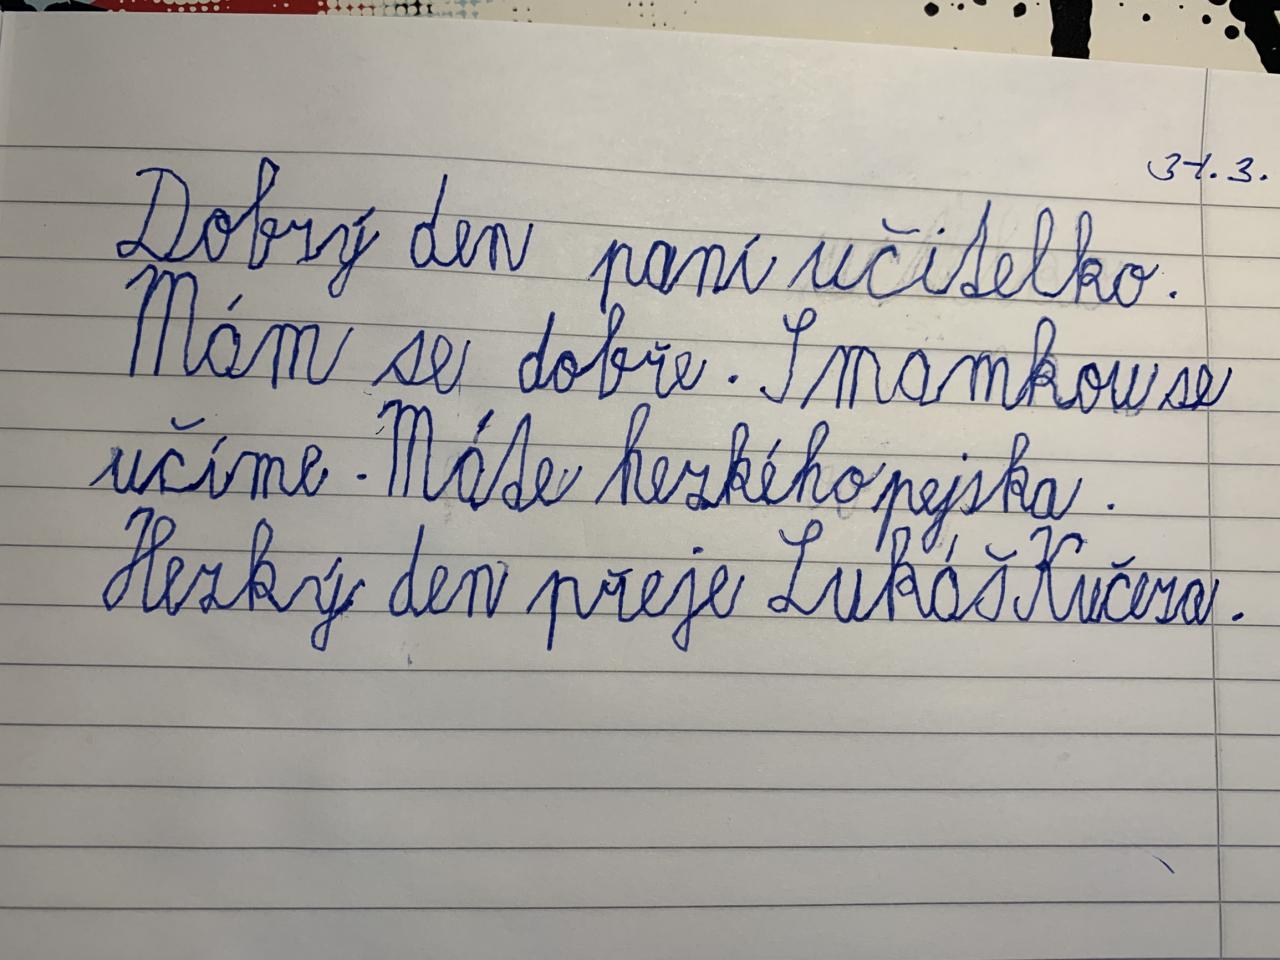 31.3.
Dobrý den paní učitelko.
Mám se dobře. S mamkou se
učíme. Máte hezkého pejska.
Hezký den přeje Lukáš Kučera.